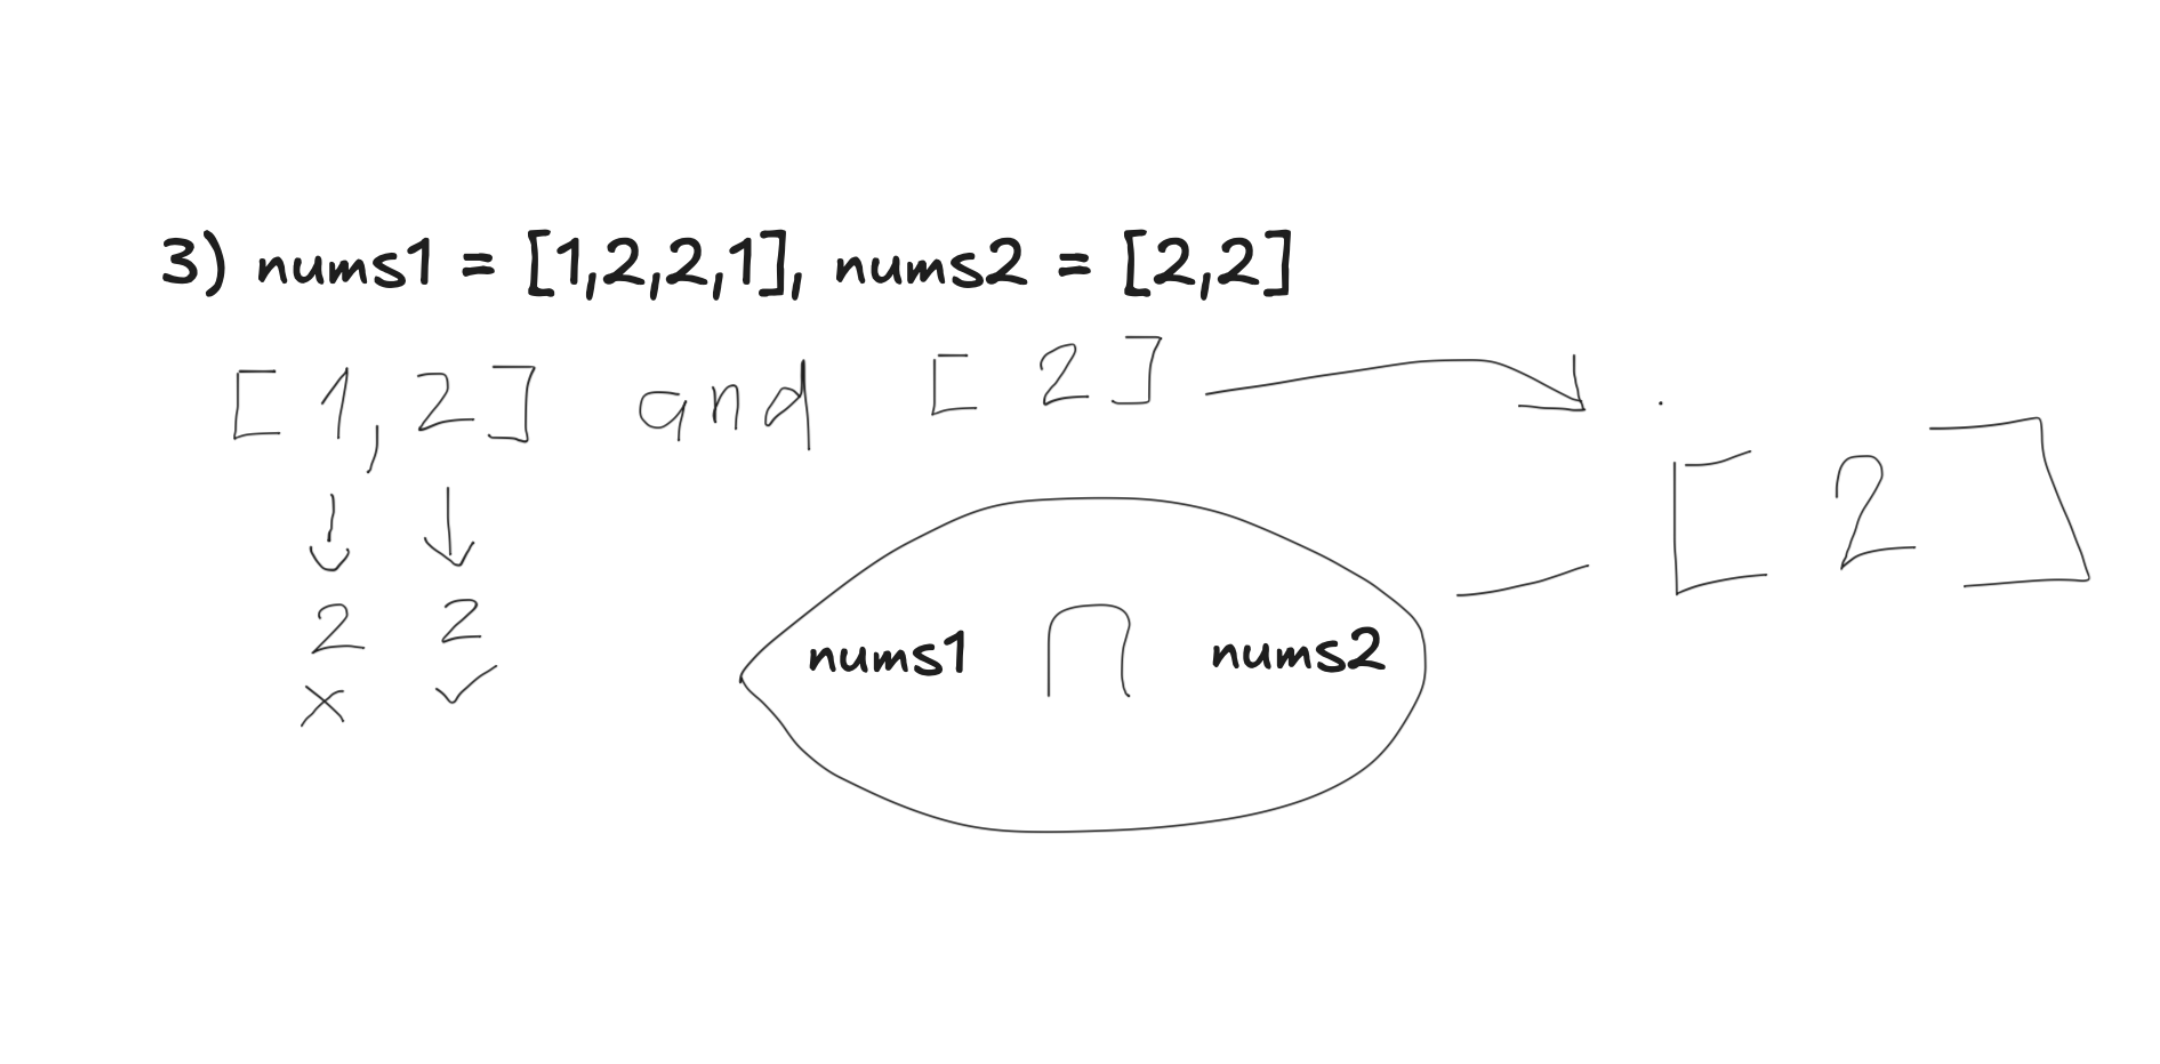 3) nums1 = [1,2,2,1], nums2 = [2,2]
[1,2] and [2]
[2]
2 2
nums1 ∩ nums2
x ✓